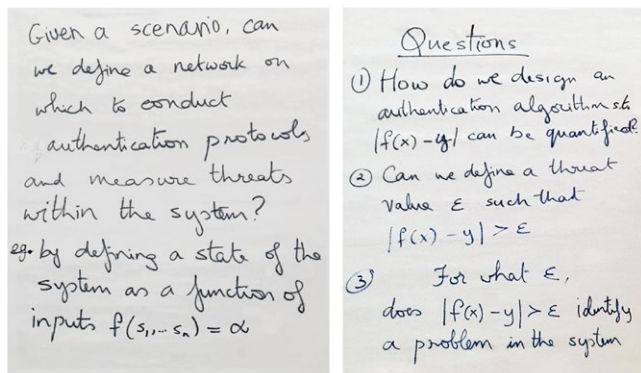 Given a scenario, can
we define a network on
which to conduct
authentication protocols
and measure threats
within the system?
eg. by defining a state of the
system as a function of
inputs f(s₁,... sₙ) = α
Questions
① How do we design an
authentication algorithm s.t.
|f(x) - y| can be quantified?
② Can we define a threat
value ε such that
|f(x) - y| > ε
③ For what ε,
does |f(x) - y| > ε identify
a problem in the system